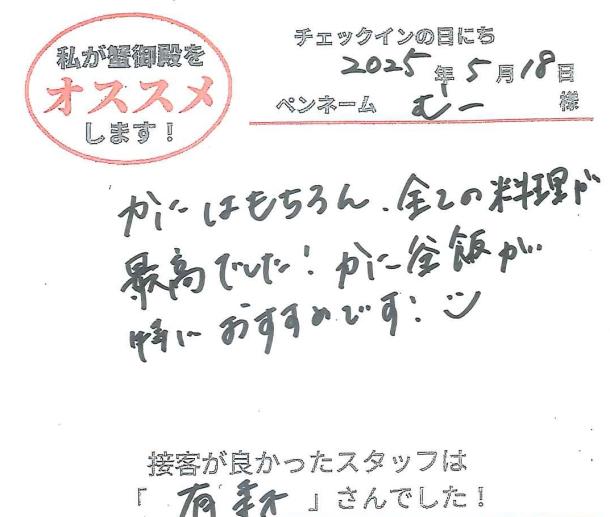 私が蟹御殿を
オススメ
します！
チェックインの日にち
2025年5月18日
ペンネーム むー 様
かにはもちろん、全ての料理が
最高でした！かに釜飯が
特におすすめです！
接客が良かったスタッフは
「 有 」さんでした！